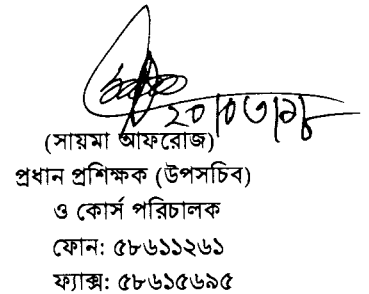 ২০/০৩/১৮
(সায়মা আফরোজ)
প্রধান প্রশিক্ষক (উপসচিব)
ও কোর্স পরিচালক
ফোন: ৫৮৬১১২৬১
ফ্যাক্স: ৫৮৬১৫৬৯৫